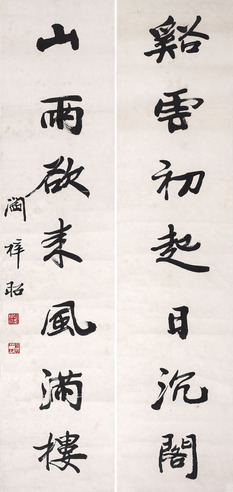 谿雲初起日沉閣
山雨欲来風滿樓
阎梓昭